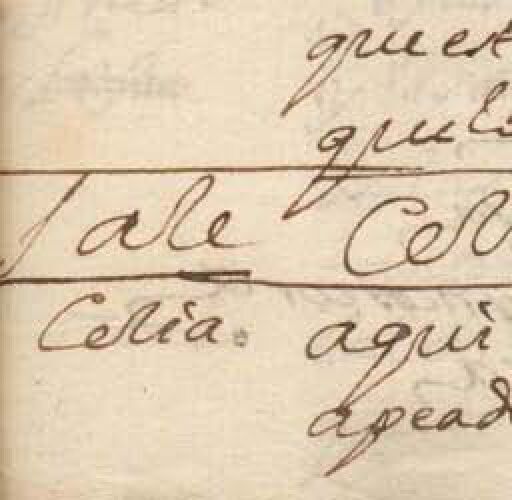 que es
que lo
Sale Cel
Celia. aqui
apead